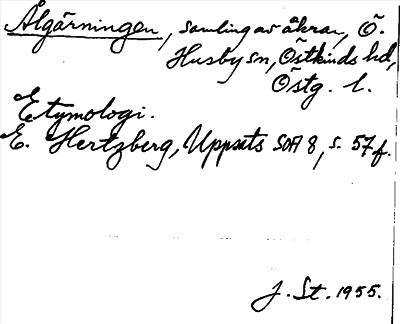 Älgärningen, samling av åkrar, Ö.
Husby sn, Östkinds hd,
Östg. l.
Etymologi.
E. Hertzberg, Uppsats SOÄ 8, s. 57 f.
J. St. 1955.